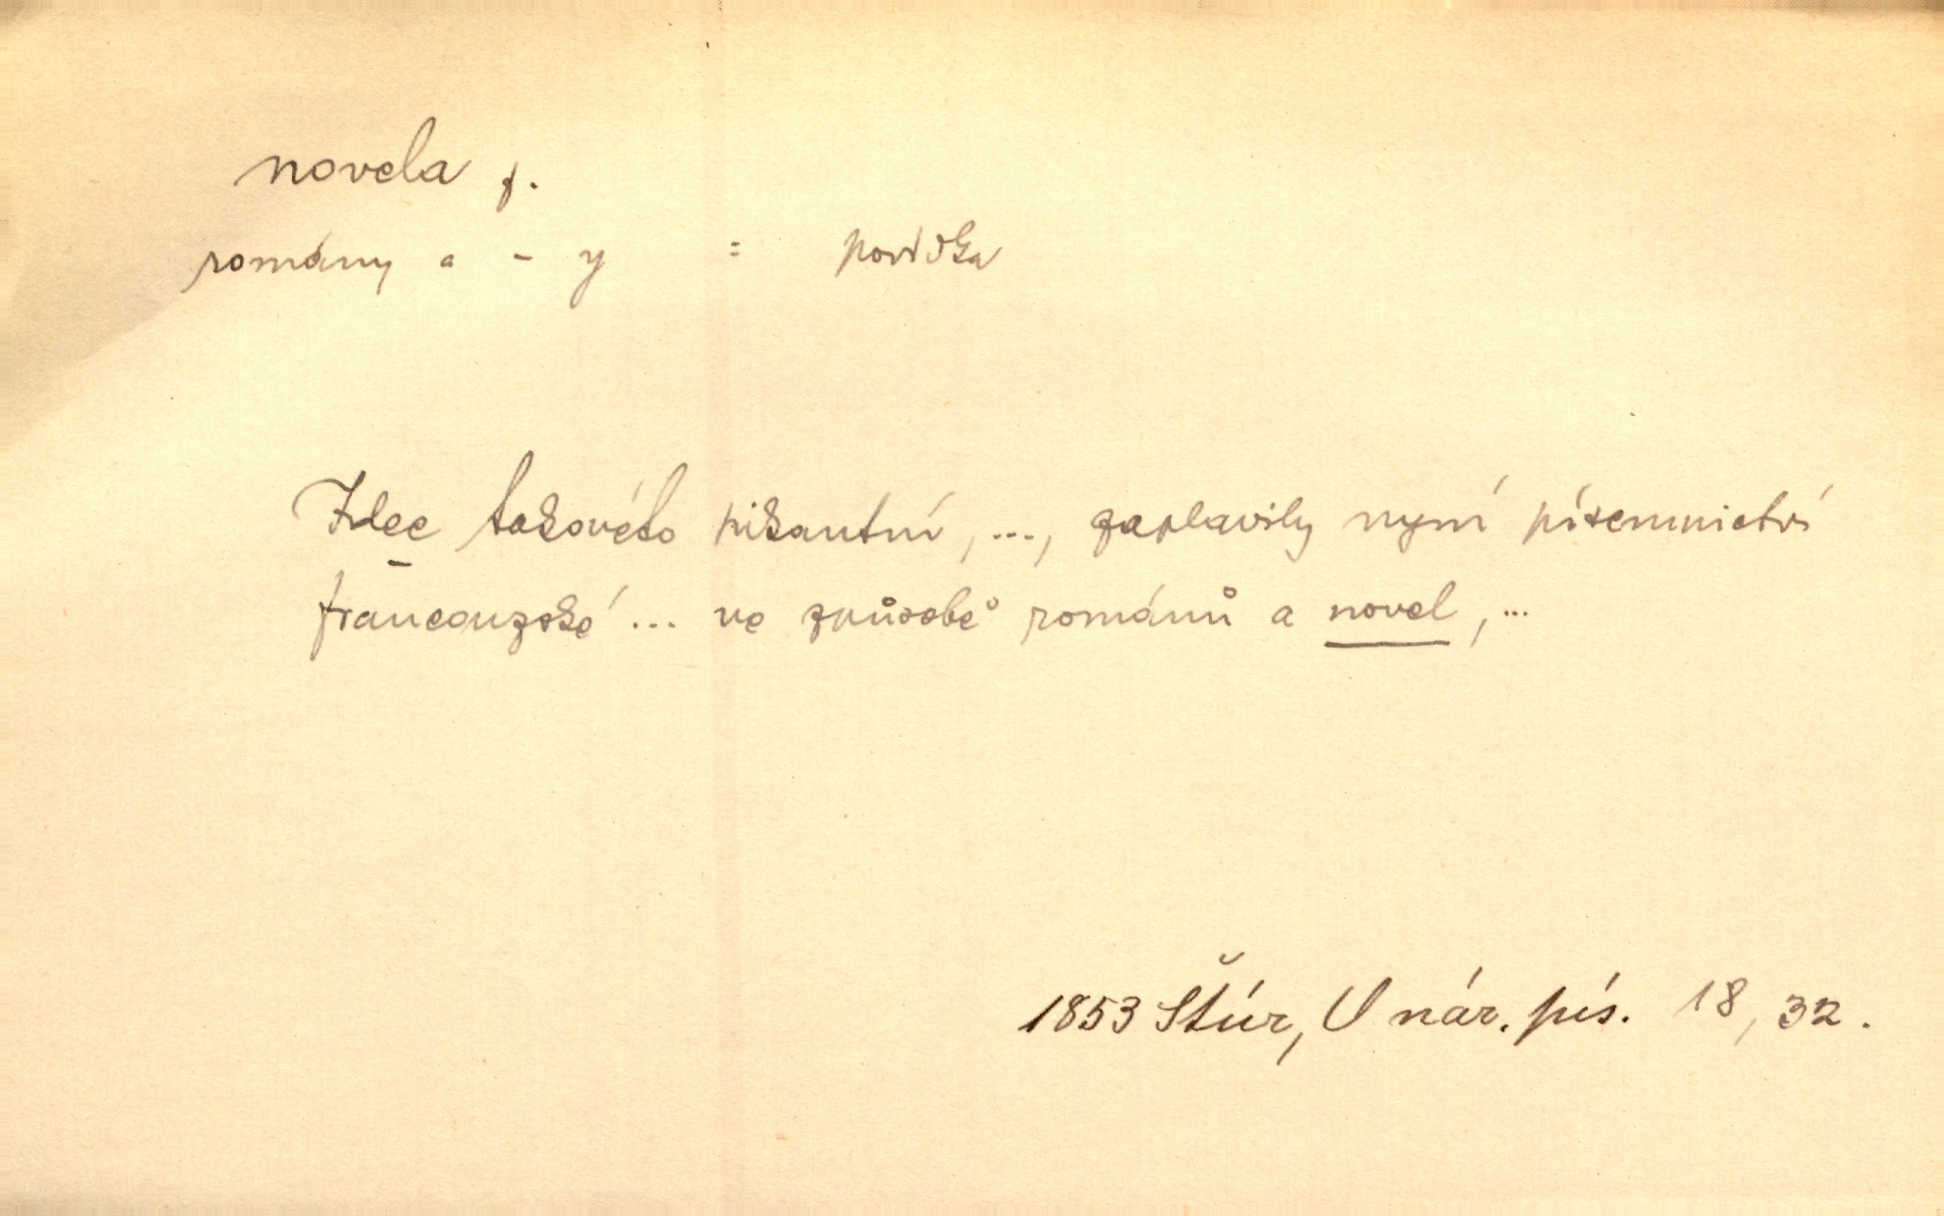 novela f.
romány a - y = povídka
Idee takovéto pikantní, ..., zaplavily nyní písemnictví
francouzské ... ve způsobě románů a novel, ...
1853 Štúr, O nár. pís. 18, 32.